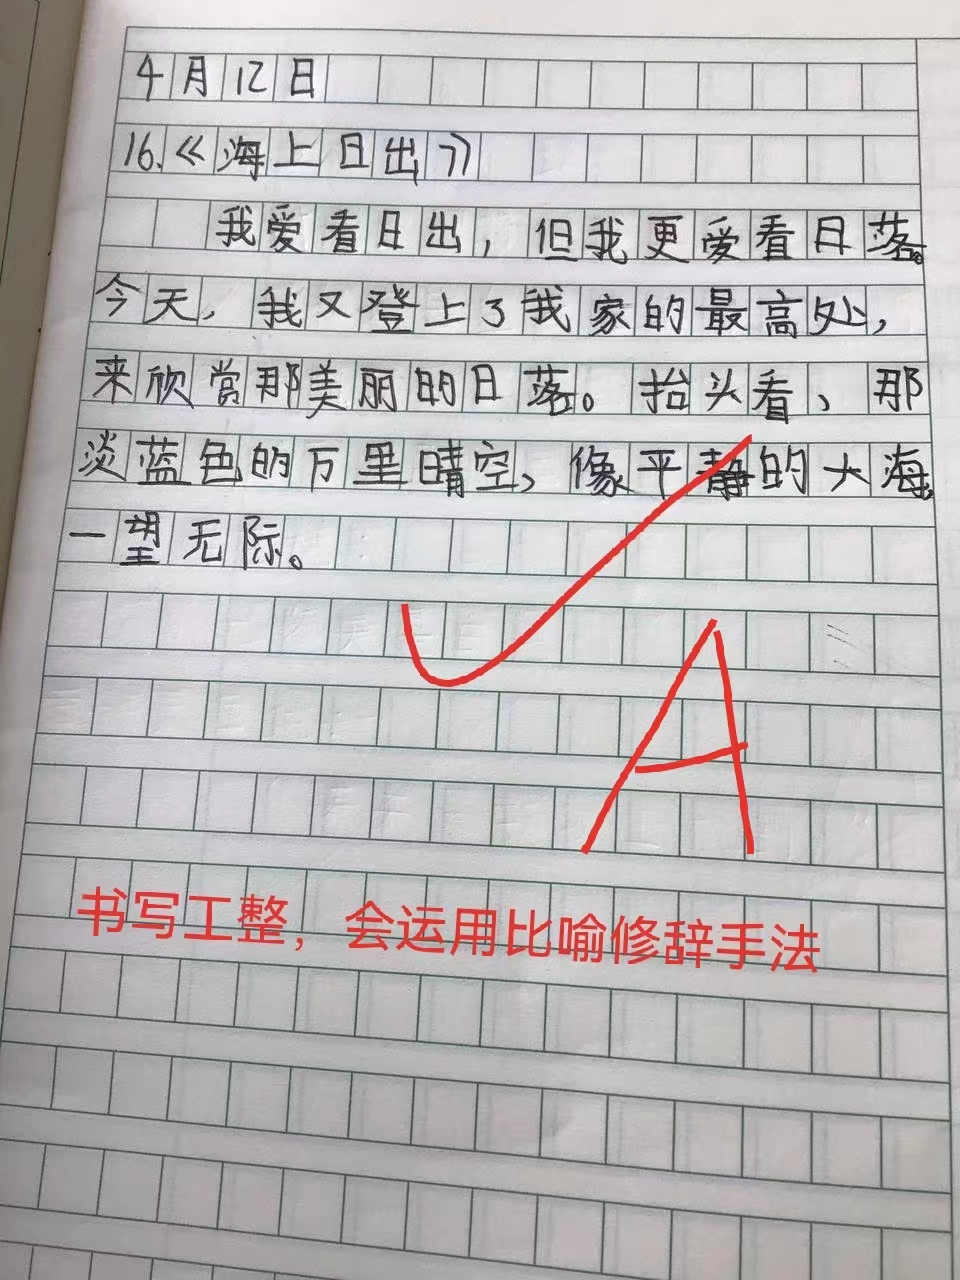 4月12日
16.《海上日出》
我爱看日出，但我更爱看日落。
今天，我又登上了我家的最高处，
来欣赏那美丽的日落。抬头看、那
淡蓝色的万里晴空，像平静的大海，
一望无际。
A
书写工整，会运用比喻修辞手法